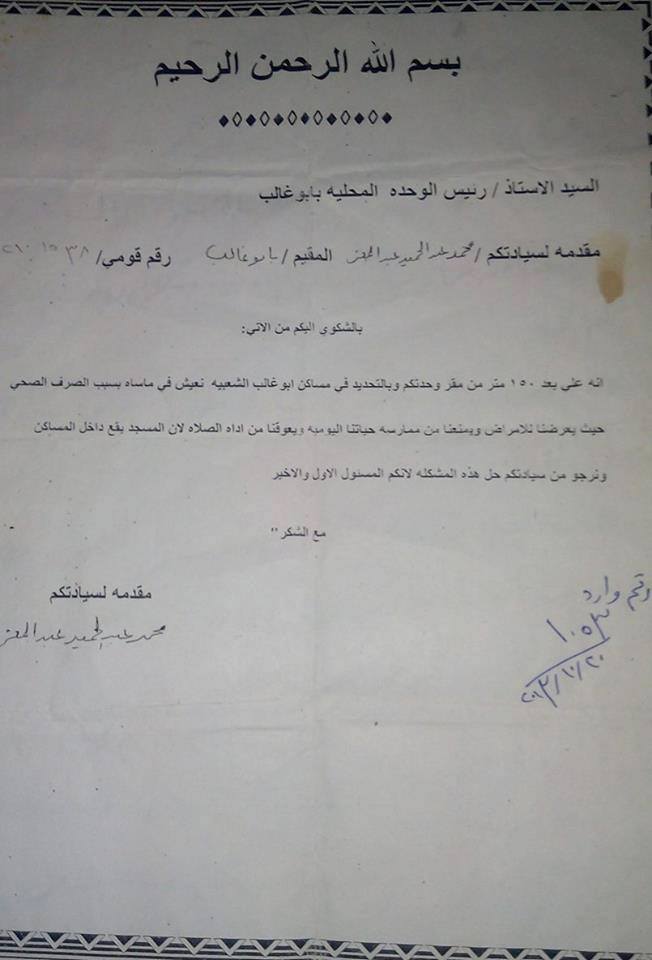 بسم الله الرحمن الرحيم
السيد الاستاذ / رئيس الوحده المحليه بابوغالب
مقدمه لسيادتكم / محمد عبد الحميد عبد المعز المقيم / بابوغالب رقم قومي/
بالشكوي اليكم من الاتي:
انه علي بعد ١٥٠ متر من مقر وحدتكم وبالتحديد في مساكن ابوغالب الشعبيه نعيش في ماساه بسبب الصرف الصحي
حيث يعرضنا للامراض ويمنعنا من ممارسه حياتنا اليوميه ويعوقنا من اداه الصلاه لان المسجد يقع داخل المساكن
ونرجو من سيادتكم حل هذه المشكله لانكم المسئول الاول والاخير
مع الشكر"
مقدمه لسيادتكم
محمد عبد الحميد عبد المعز
رقم وارد
١٠٥٣
٢٠١٣/١٠/٢٠